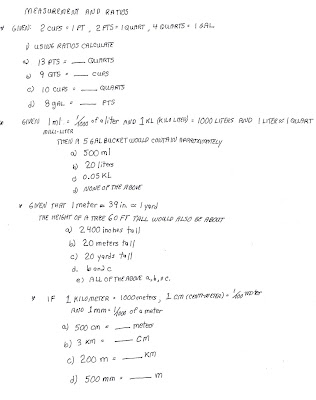 MEASUREMENT AND RATIOS
* GIVEN: 2 CUPS = 1 PT , 2 PTS = 1 QUART , 4 QUARTS = 1 GAL
1) USING RATIOS CALCULATE
a) 13 PTS = ___ QUARTS
b) 9 QTS = ___ CUPS
c) 10 CUPS = ___ QUARTS
d) 8 gAL = ___ PTS
* GIVEN 1 ml = 1/1000 of a liter AND 1 KL (KILO LITER) = 1000 LITERS AND 1 LITER ≈ 1 QUART
MILLI-LITER
THEN A 5 GAL BUCKET WOULD CONTAIN APPROXIMATELY
a) 500 ml
b) 20 liters
c) 0.05 KL
d) NONE OF THE ABOVE
* GIVEN THAT 1 meter ≈ 39 in ≈ 1 yard
THE HEIGHT OF A TREE 60 FT TALL WOULD ALSO BE ABOUT
a) 2400 inches tall
b) 20 meters tall
c) 20 yards tall
d. b or c
e) ALL OF THE ABOVE a, b, or c.
* IF 1 KILOMETER = 1000 meters , 1 cm (CENTIMETER) = 1/100 meter
AND 1 mm = 1/1000 of a meter
a) 500 cm = ___ meter
b) 3 KM = ___ CM
c) 200 m = ___ KM
d) 500 mm = ___ m